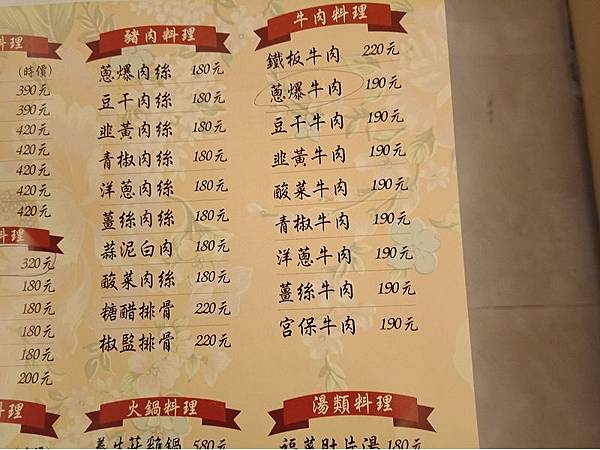 料理
(時價)
390元
390元
420元
420元
420元
420元
420元
料理
320元
180元
180元
180元
180元
200元
料理
豬肉料理
蔥爆肉絲 180元
豆干肉絲 180元
韭黃肉絲 180元
青椒肉絲 180元
洋蔥肉絲 180元
薑絲肉絲 180元
蒜泥白肉 180元
酸菜肉絲 180元
糖醋排骨 220元
椒監排骨 220元
火鍋料理
養生菇雞鍋 580元
牛肉料理
鐵板牛肉 220元
蔥爆牛肉 190元
豆干牛肉 190元
韭黃牛肉 190元
酸菜牛肉 190元
青椒牛肉 190元
洋蔥牛肉 190元
薑絲牛肉 190元
宮保牛肉 190元
湯類料理
福菜肚片湯 180元